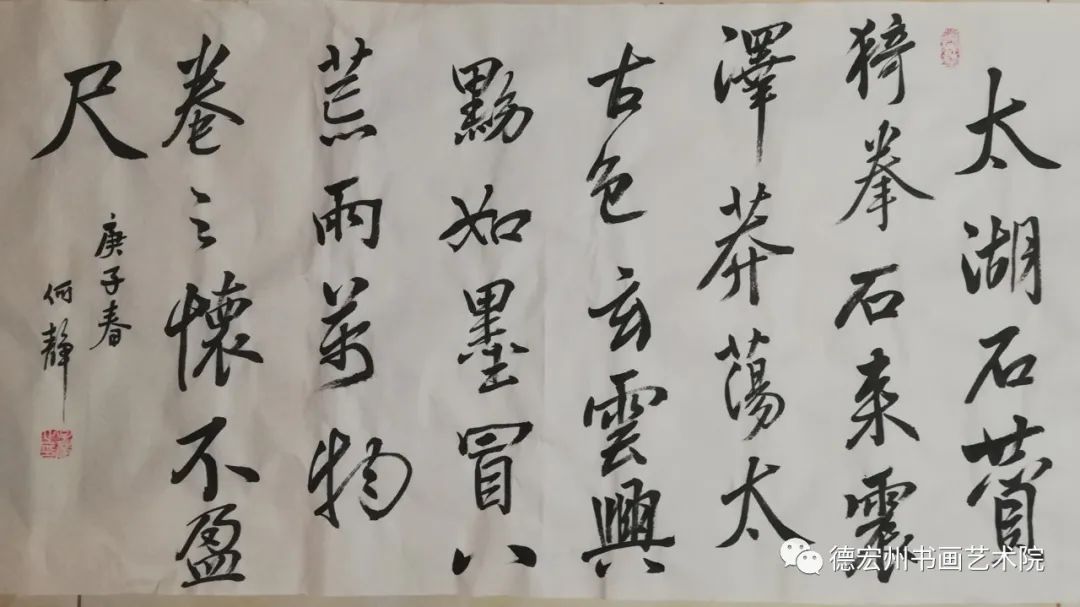 太湖石贊
猗拳石来震
澤莽蕩太
古色玄雲興
黝如墨冒八
荒雨萬物
卷之懷不盈
尺
庚子春
何靜
德宏州书画艺术院